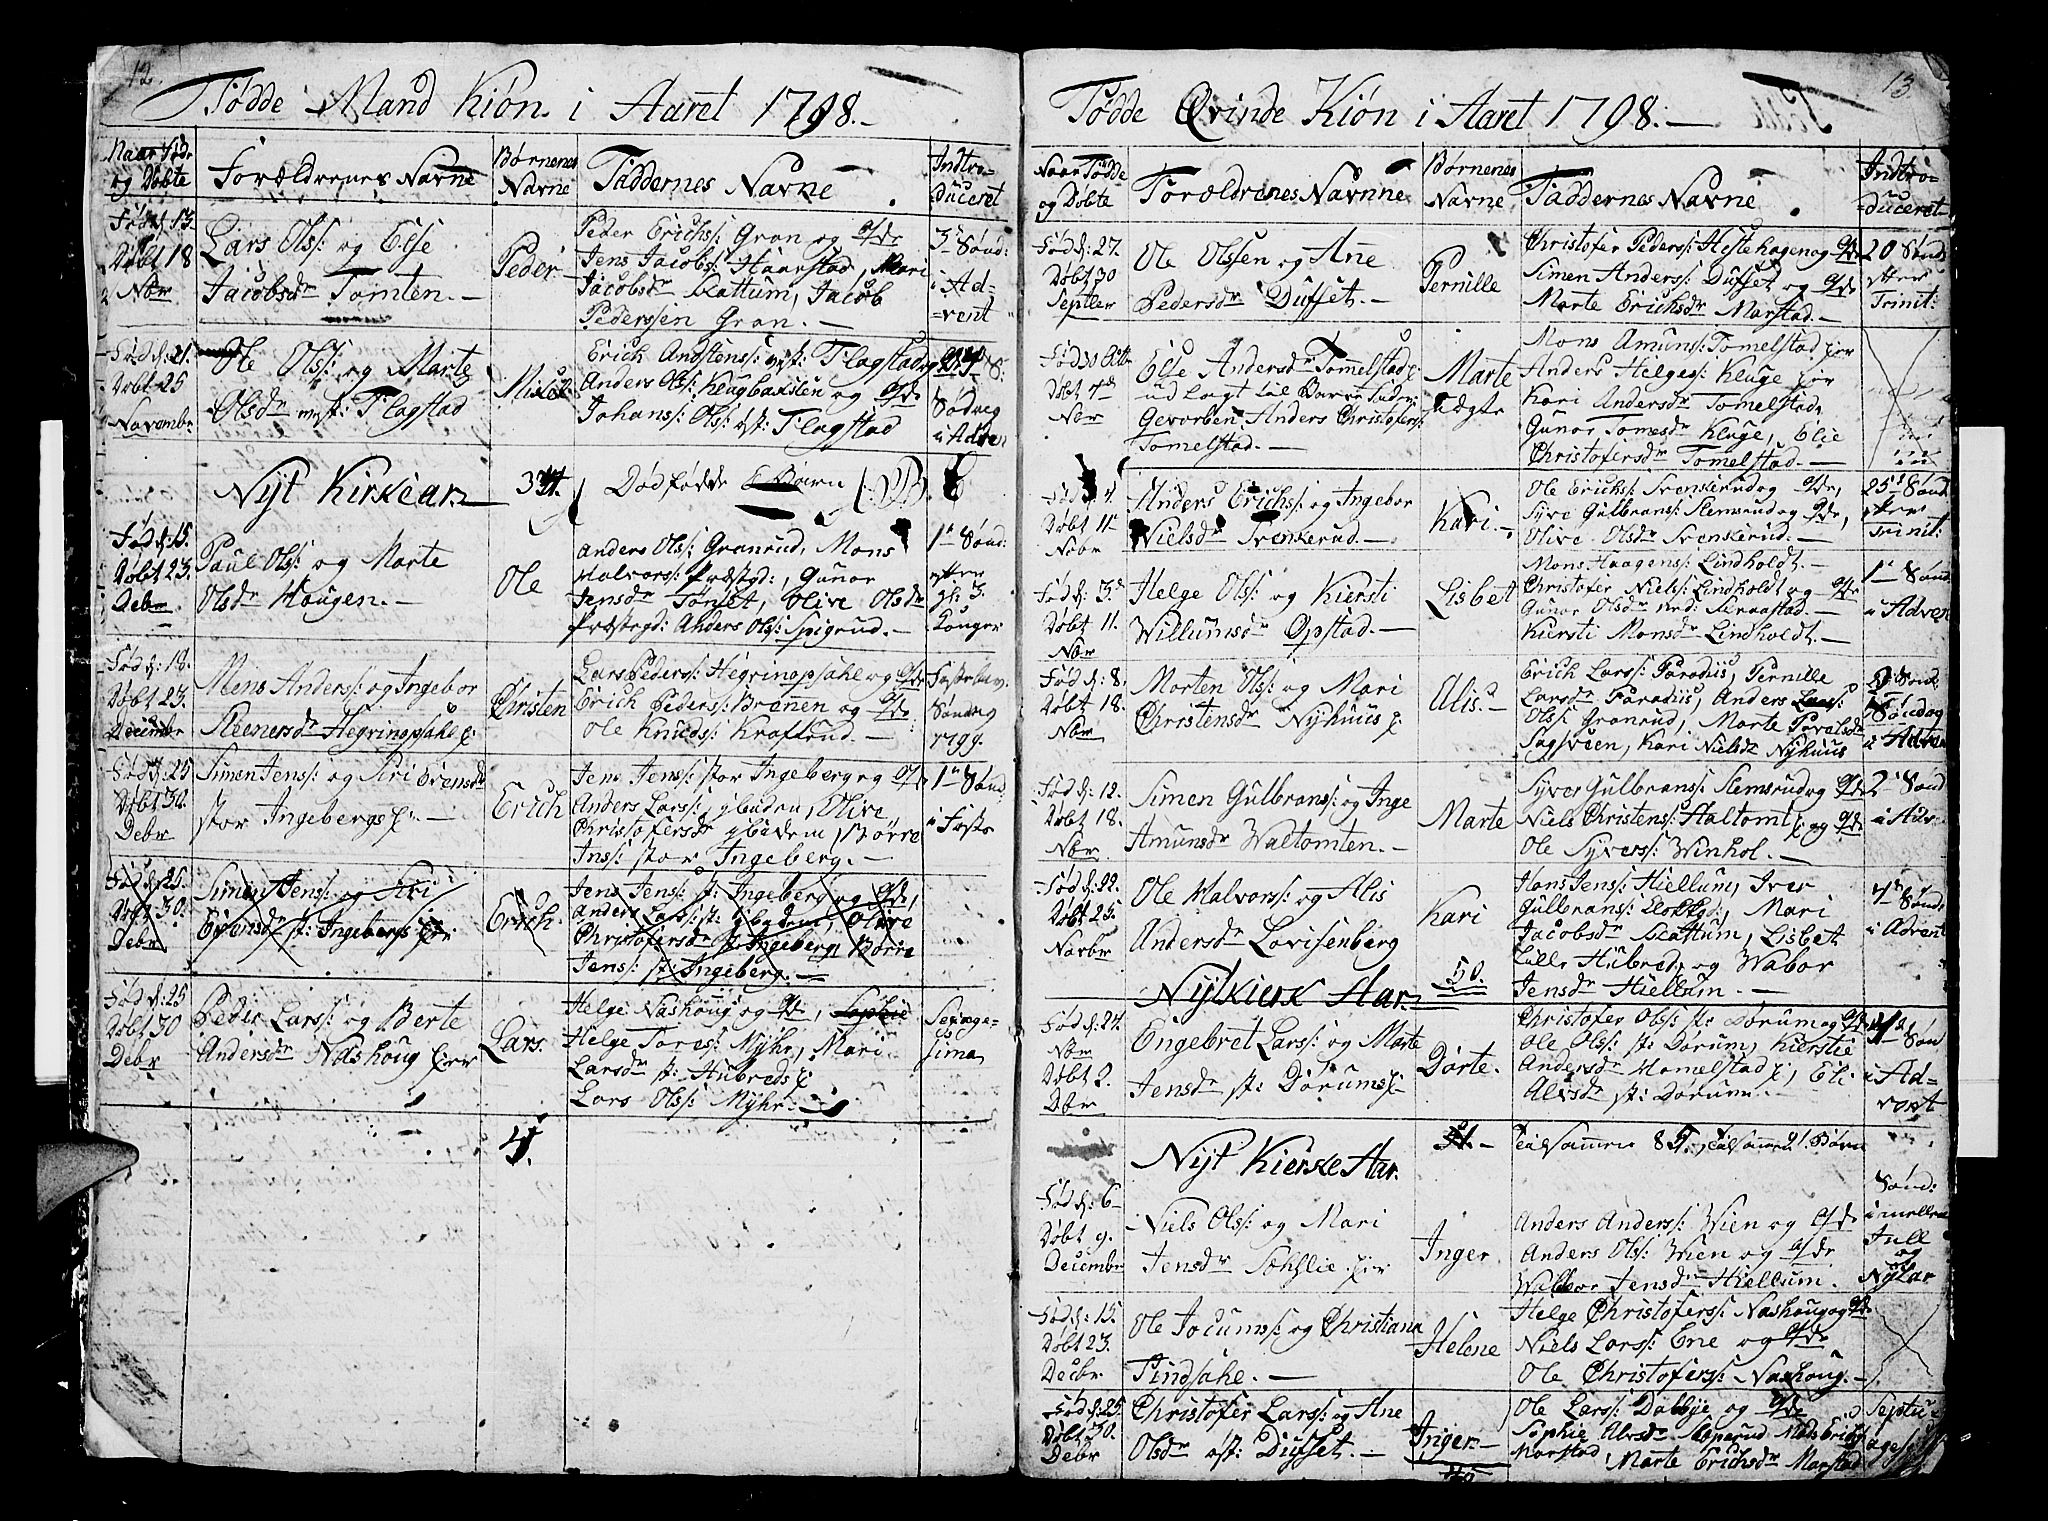 12.
Fødde Mand Kiøn i Aaret 1798.
Naar Føde
og Døbte
Forældrenes Navne
Børnenes
Navne
Faddernes Navne
Indtro-
duceret
Fød d: 13.
Døbt 18
Nobr
Lars Ols: og Else
Jacobsdr Tomten.
Peder
Peder Erichs: Gron og q/de
Jens Jacobs: Haarstad, Mari
Jacobsdr Skattum, Jacob
Pederssen Gron.
3de Sønd:
i Ad-
vent
Fød d: 21.
Døbt 25
Novembr
Ole Ols: og Marte
Olsdr vest: Flagstad
Erich Andstens: vest: Flagstad
Anders Ols: Klugbakken og q/de
Johans: Ols: vst: Flagstad
Nyt Kirkeaar
Dødfødde Børn
Fød d: 15.
Døbt 23.
Debr.
Paul Ols: og Marte
Olsdr Hougen.
Ole
Anders Ols: Gronrud, Mons
Halvors: Præstgd:, Gunor
Jensdr Tønset, Olive Olsdr
Præstegd: Anders Ols: Spigrud.
1ste Sønd:
efter
hl: 3
Konger
Fød d: 18.
Døbt 23.
Decembr
Mens Anders: og Ingebor
Steenersdr Hegrinopsahl
Christen
Lars Peders: Hegrinopsahl og q/de
Erich Peders: Brenen og q/de
Ole Knuds: Kraftrud.
Fastelav.
Søndag
Fød d: 25
Døbt 30.
Debr
Simen Jens: og Siri Evensdr
stor Ingebergs
Erich
Jens Jens: stor Ingeberg og q/de
Anders Lars: ibidem, Olive
Christofersdr ibidem, Børre
Jens: stor Ingeberg.
1ste Sønd
i Faste
Fød d: 25.
Døbt 30.
Debr
Simen Jens: og Siri
Evensdr st: Ingebergs
Erich
Jens Jens: st: Ingeberg og q/de,
Anders Lars: st: ibidem, Olive
Christofersdr st: Ingeberg, Børre
Jens: st: Ingeberg.
Fød d: 25
Døbt 30
Debr
Peder Lars: og Berte
Andersdr Nashoug
Lars.
Helge Nashoug og q/de, Sophie
Helge Tores: Myhr, Mari
Larsdr st: Hubreds
Lars Ols: Myhr.
Sexage-
sima
4.
13
Fødde Qvinde Kiøn i Aaret 1798.
Naar Fødde
og Døbte
Forældrenes Navnne
Børnenes
Navne
Faddernes Navne
Indtro-
duceret
Fød d: 27.
Døbt 30
Septbr
Ole Olssen og Ane
Pedersdr Dufset.
Pernille
Christofer Peders: Hestehagen og q/de
Simen Anders: Dufset og q/de
Marte Erichsdr Marstad.
20 Sønd:
efter
Trinit:
Fød 30 Octbr
Døbt 4de
Nobr
Else Andersdr Tomelstad
udlagt til Barne Fader
Gevorben Anders Christofers:
Tomelstad.
Marte
uægte
Mons Amuns: Tomelstad
Anders Helges: Kluge
Kari Andersdr Tomelstad,
Gunor Tomesdr Kluge, Elie
Christofersdr Tomelstad.
Fød d: 4
Døbt 11
Nobr
Anders Erichs: og Ingebor
Nielsdr Svenkerud.
Kari.
Ole Erichs: Svenkerud og q/de,
Syve Gulbrans: Slemsrud og q/de,
Olive Olsdr Svenkerud.
25de Sønd
efter
Trinit:
Fød d: 3de
Døbt 11.
Nobr
Helge Ols: og Kiersti
Willumsdr Opstad.
Lisbet
Mons Haagens: Lindholdt.
Christofer Niels: Lindholdt og q/de
Gunor Olsdr
Kiersti Monsdr Lindholdt.
1ste Sønd
i Adven
Fød d: 8.
Døbt 18.
Nobr
Morten Ols: og Mari
Christensdr Nyhuus
Alis.
Erich Lars: Paradiis, Pernille
Larsdr Paradiis, Anders Lars:
Ols: Gronrud, Marte Povelsdr
Sagsveen, Kari Nielsdr Nyhuus
Søndag
i Adven
Fød d: 12.
Døbt 18.
Nobr
Simen Gulbrans: og Inge
Amunsdr Waltomten.
Marte
Syver Gulbrans: Slemsrud og q/de
Niels Christens: Haltomt og q/de
Ole Syvers: Winhol.
2de Sønd
i Adv.
Fød d: 22.
Døbt 25.
Novbr
Ole Halvors: og Alis
Andersdr Lovisenberg
Kari
Hans Jens: Hiellum, Iver
Gulbrans: Klokkg:, Mari
Jacobsdr Skattum, Lisbet
Lille Hubred, og Wabor
Jensdr Hiellum.
4de Sønd
i Advent
Nytkierk Aar
50.
Fød d: 24.
Nobr
Døbt 2.
Dbr
Engebret Lars: og Marte
Jensdr st: Dørums
Dorte.
Christofer Ols: st: Dørum og q/de
Ole Ols: st: Dørum, Kierstie
Andersdr Homelstad, Eli
Alvsdr st: Dørum.
4de Søn
i Ad-
vent
Nyt Kierke Aar.
Tilsammen 85., tilsammen 91. Børn
Fød d: 6
Døbt 9.
Decembr
Niels Ols: og Mari
Jensdr Sæhslie
Inger
Anders Anders: Wien og q/de
Anders Ols: Wien og q/de
Walbor Jensdr Hiellum.
Sønd:
imellem
Jull
og
Nytaar
Fød d: 15.
Døbt 23.
Decbr.
Ole Jocums: og Christiana
Findsahe.
Helene
Helge Christofers: Nashoug og q/de
Niels Lars: Ene og q/de
Ole Christofers: Nashoug.
Fød d: 25.
Døbt 30.
Debr
Christofer Lars: og Ane
Olsdr øst: Dufset.
Inger
Ole Lars: Dalbye og q/de
Sophie Alvsdr Stoperud Mads Erichs
Marstad, Marte Erichsdr Marstad
Septu-
ages: